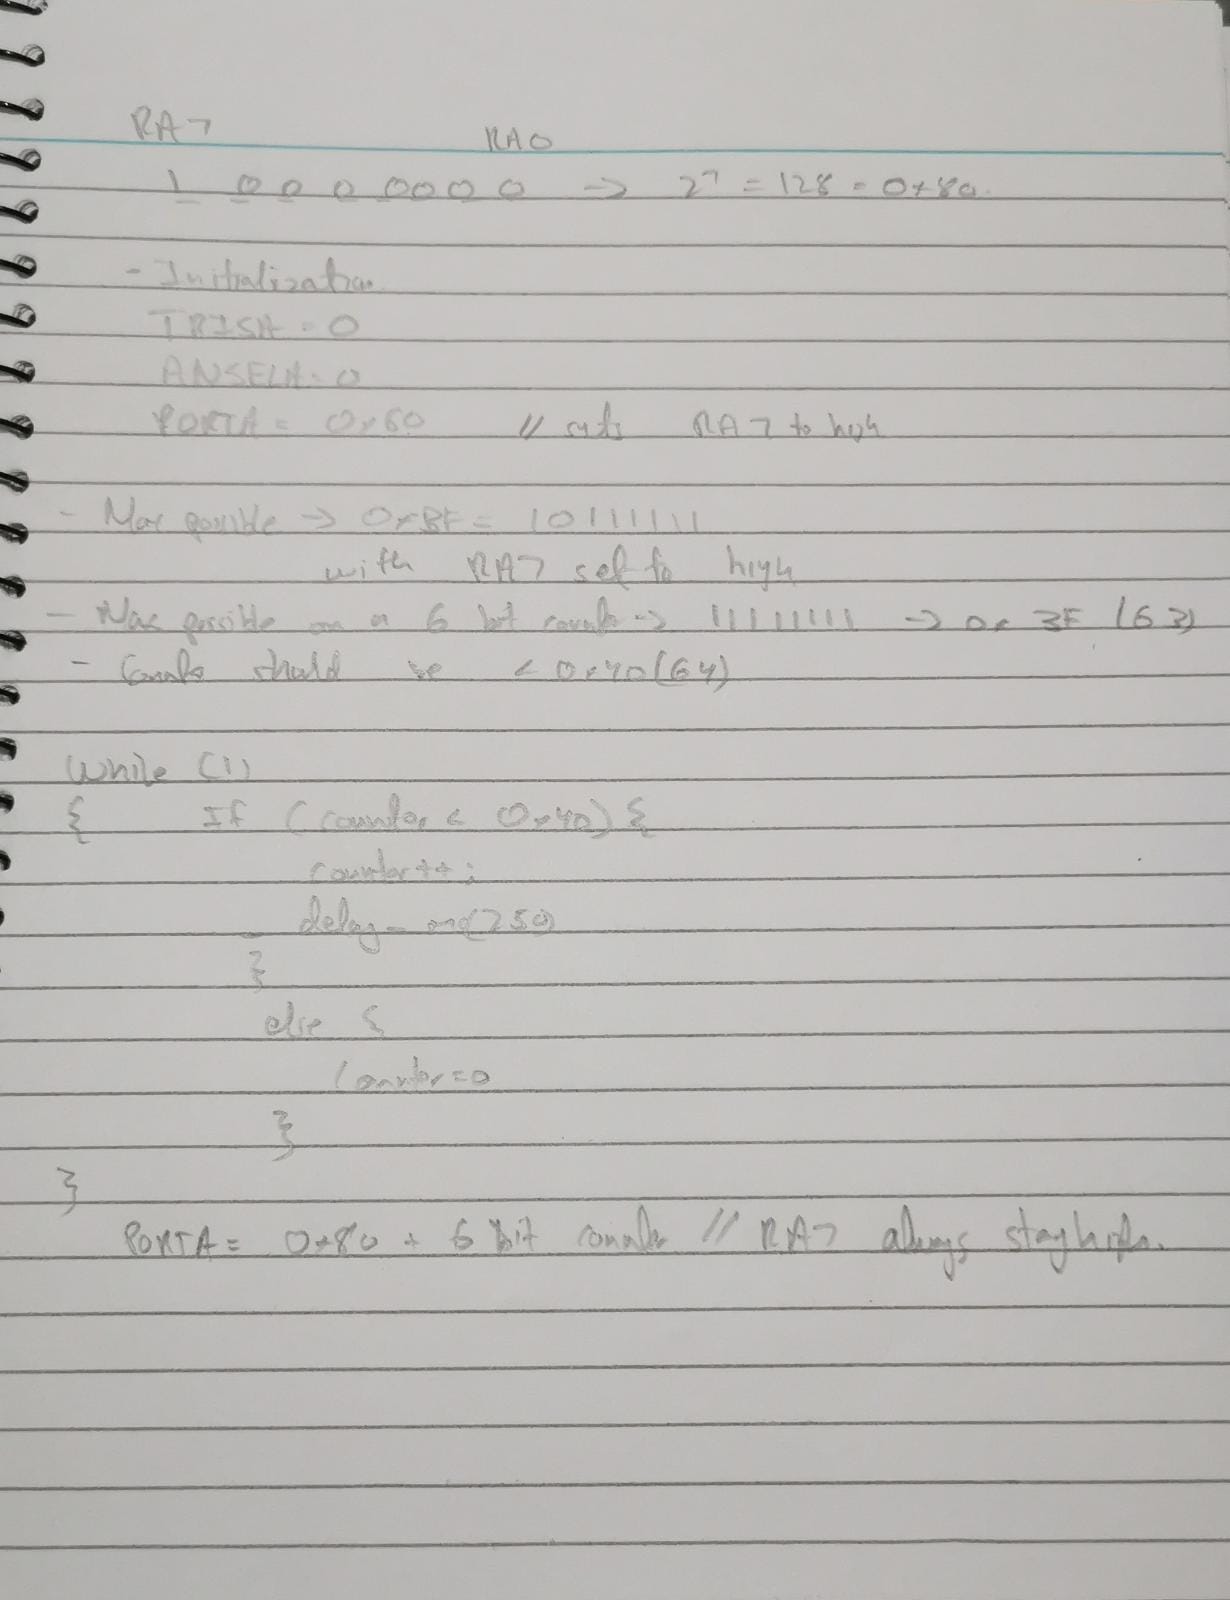 RA7 RA0
1 0 0 0 0 0 0 0 → 2^7 = 128 = 0x80
- Initialization
TRISA = 0
ANSELA = 0
PORTA = 0x80 // sets RA7 to high
- Max possible → 0xBF = 10111111
with RA7 set to high
- Max possible on a 6 bit → 11111111 → 0x 3F (63)
- should be < 0x40 (64)
While (1)
{ If (counter < 0x40) {
counter++;
delay_ms(250)
}
else {
Counter = 0
}
}
PORTA = 0x80 + 6 bit counter // RA7 always stay high.